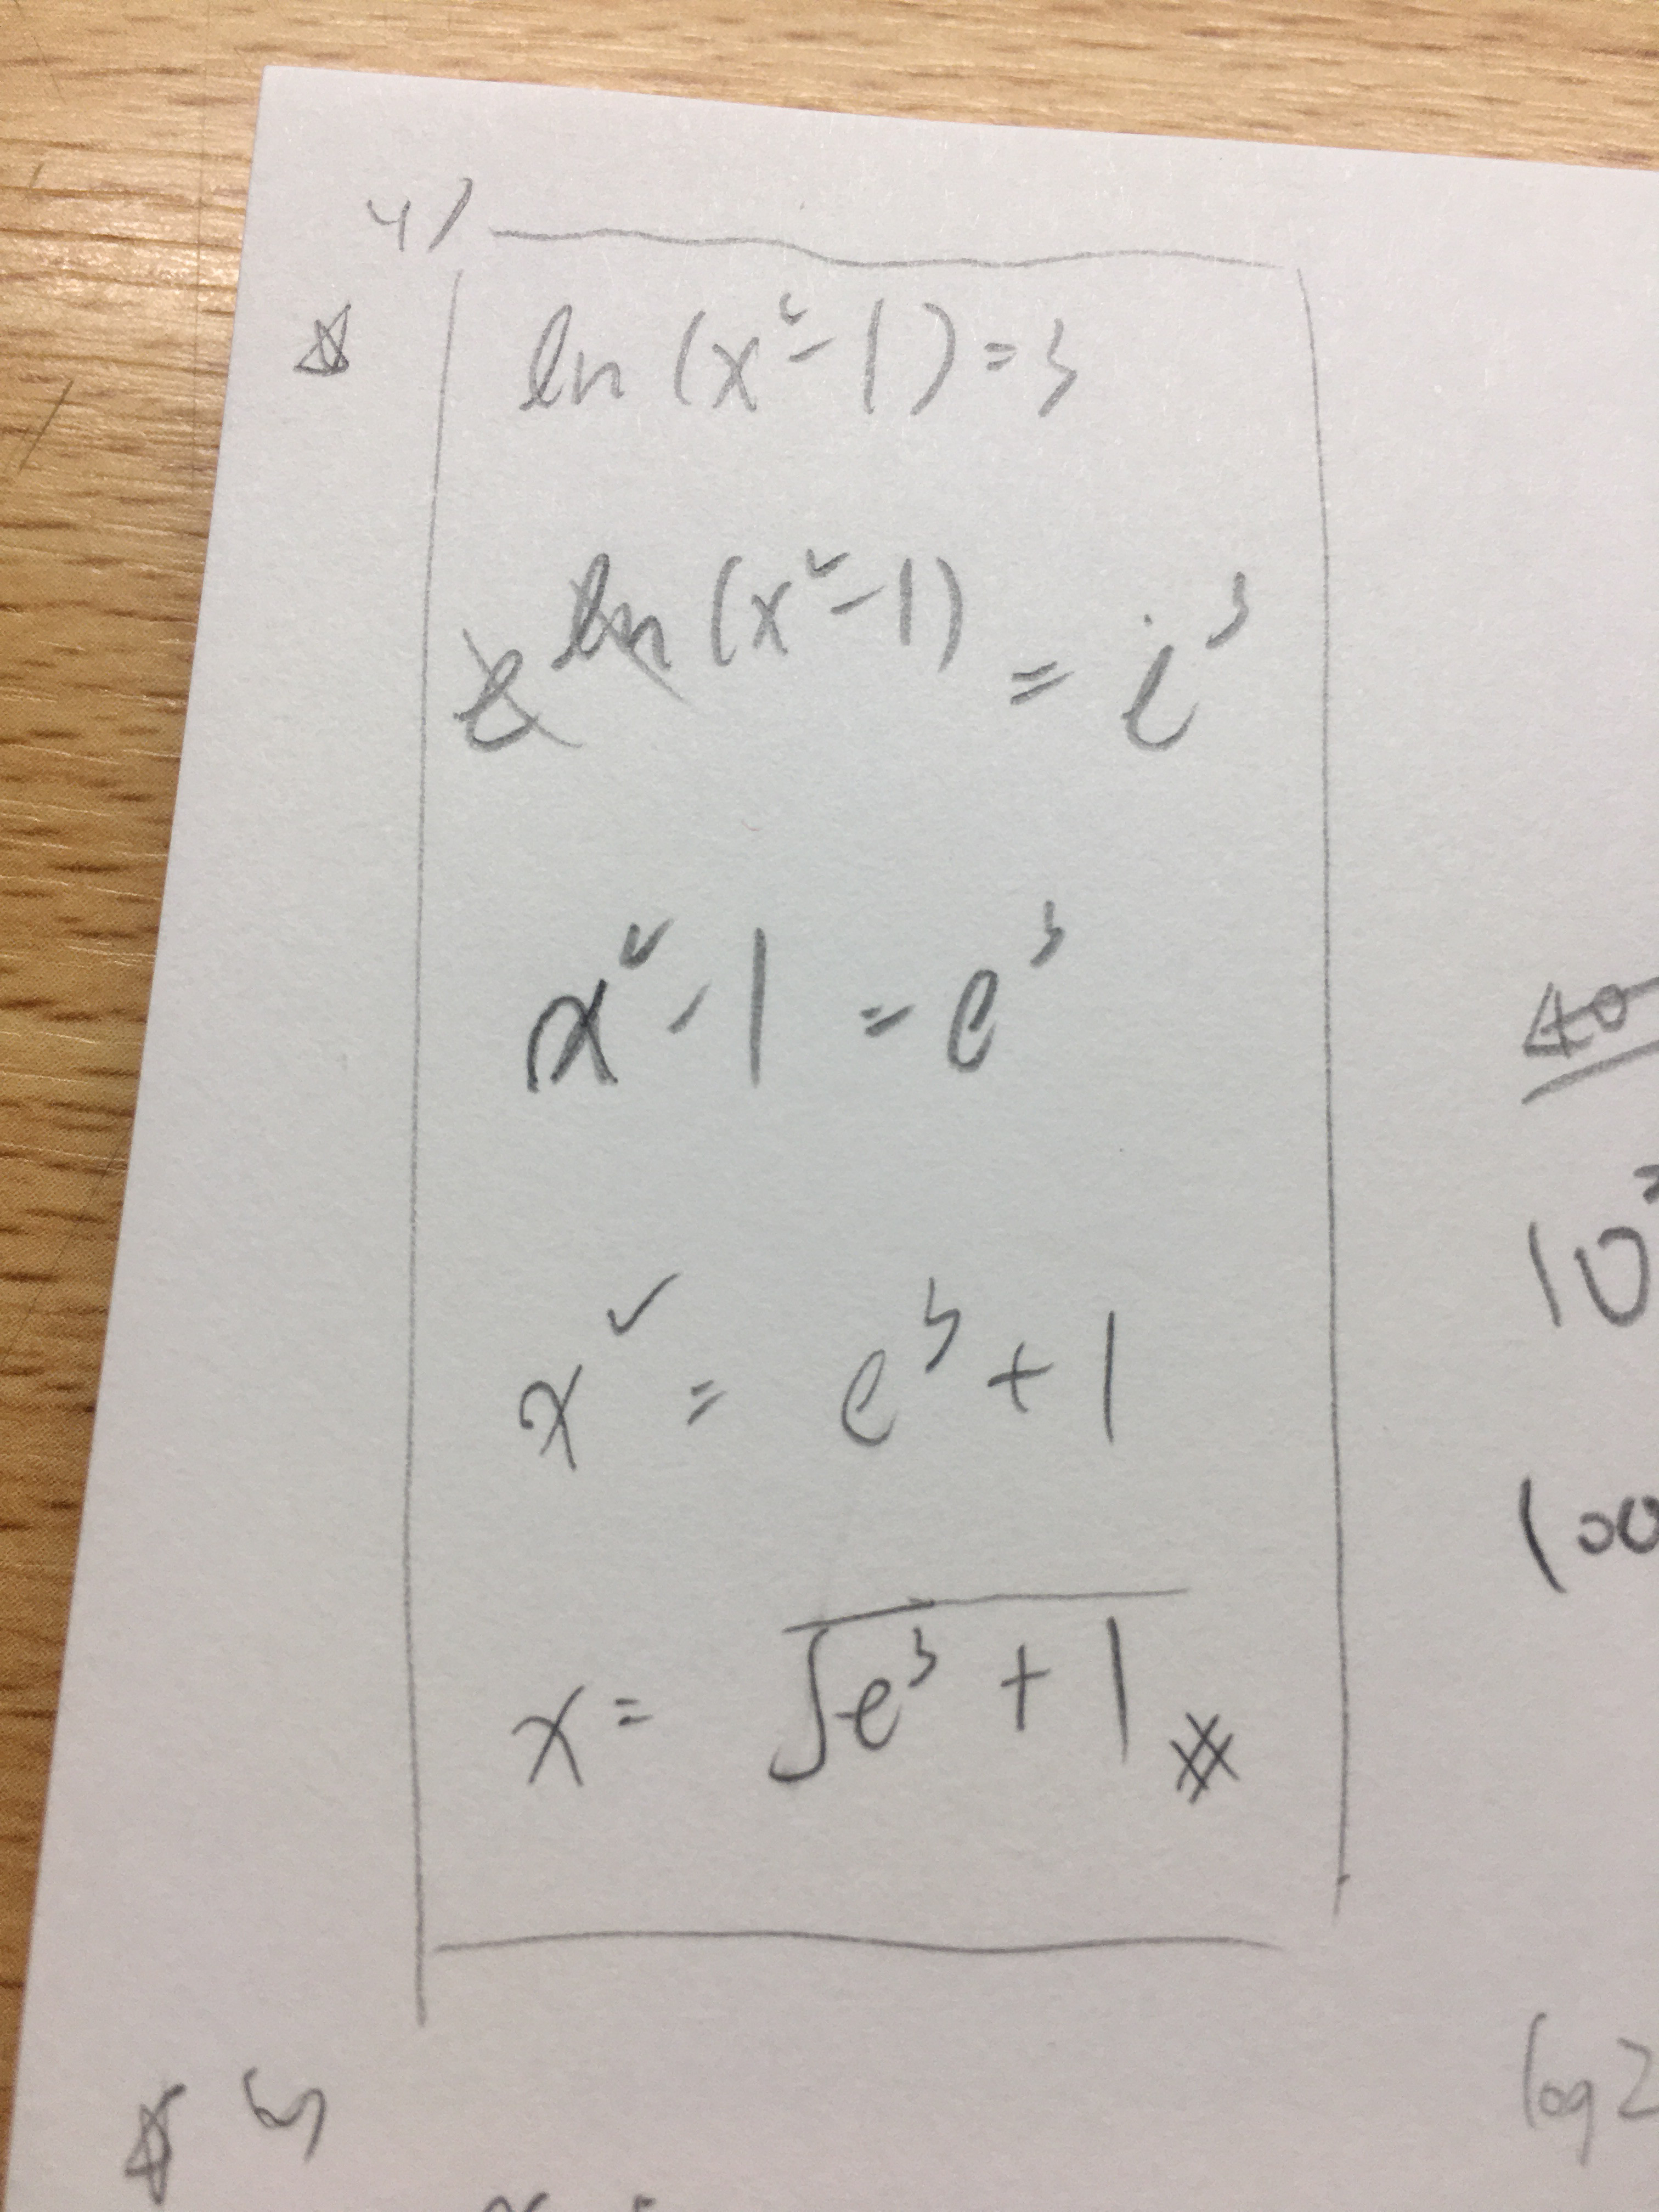 4)
ln (x²-1) = 3
e^ln (x²-1) = e³
x²-1 = e³
x² = e³+1
x = √e³+1
40
10
100
log 2